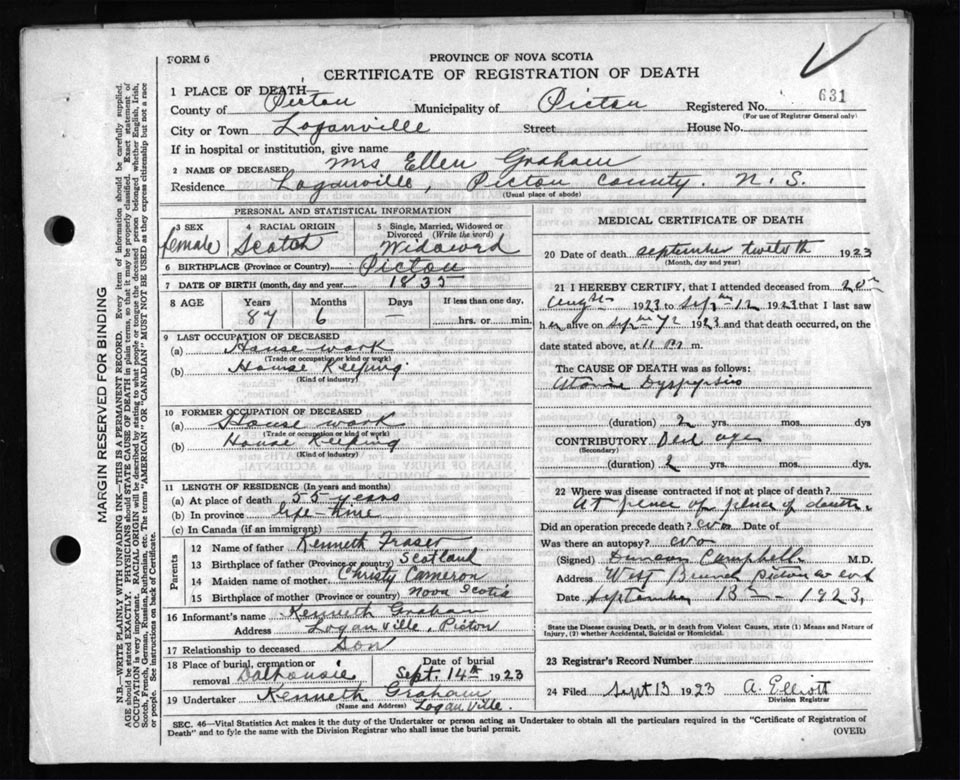 FORM 6
PROVINCE OF NOVA SCOTIA
CERTIFICATE OF REGISTRATION OF DEATH
1 PLACE OF DEATH
County of Pictou Municipality of Pictou Registered No. 631
(For use of Registrar General only)
City or Town Loganville Street House No.
If in hospital or institution, give name
2 NAME OF DECEASED Mrs Ellen Graham
Residence Loganville, Pictou County. N.S.
(Usual place of abode)
PERSONAL AND STATISTICAL INFORMATION
3 SEX 4 RACIAL ORIGIN 5 Single, Married, Widowed or Divorced (Write the word)
female Scotch Widowed
6 BIRTHPLACE (Province or Country) Pictou
7 DATE OF BIRTH (month, day and year) 1835
8 AGE Years Months Days If less than one day,
87 6 — hrs. or min.
9 LAST OCCUPATION OF DECEASED
(a) House work
(Trade or occupation or kind of work)
(b) House Keeping
(Kind of industry)
10 FORMER OCCUPATION OF DECEASED
(a) House work
(Trade or occupation or kind of work)
(b) House Keeping
(Kind of industry)
11 LENGTH OF RESIDENCE (In years and months)
(a) At place of death 55 years
(b) In province life-time
(c) In Canada (if an immigrant)
Parents
12 Name of father Kenneth Fraser
13 Birthplace of father (Province or country) Scotland
14 Maiden name of mother Christy Cameron
15 Birthplace of mother (Province or country) Nova Scotia
16 Informant's name Kenneth Graham
Address Loganville, Pictou
17 Relationship to deceased Son
18 Place of burial, cremation or removal Dalhousie Date of burial Sept. 14th 1923
19 Undertaker Kenneth Graham
(Name and Address) Loganville.
MEDICAL CERTIFICATE OF DEATH
20 Date of death september twelvth 1923
(Month, day and year)
21 I HEREBY CERTIFY, that I attended deceased from 20th
1923 to 12 1923 that I last saw
her alive on 1923 and that death occurred, on
date stated above, at 11 m.
The CAUSE OF DEATH was as follows:
Atonic Dyspepsia
(duration) 2 yrs. mos. dys
CONTRIBUTORY age
(Secondary)
(duration) 2 yrs. mos. dys.
22 Where was disease contracted if not at place of death?
At place of place of death.
Did an operation precede death? no Date of
Was there an autopsy? no
(Signed) Duncan Campbell M.D.
Address West Branch Pictou
Date september 13th - 1923.
State the Disease causing Death, or in death from Violent Causes, state (1) Means and Nature of Injury, (2) whether Accidental, Suicidal or Homicidal.
23 Registrar's Record Number
24 Filed Sept 13 1923 A. Elliott
Division Registrar
SEC. 46—Vital Statistics Act makes it the duty of the Undertaker or person acting as Undertaker to obtain all the particulars required in the "Certificate of Registration of
Death" and to fyle the same with the Division Registrar who shall issue the burial permit.
(OVER)
MARGIN RESERVED FOR BINDING
N.B.—WRITE PLAINLY WITH UNFADING INK—THIS IS A PERMANENT RECORD. Every item of information should be carefully supplied.
AGE should be stated EXACTLY. PHYSICIANS should STATE CAUSE OF DEATH in plain terms, so that it may be properly classified. Exact statement of
OCCUPATION is very important. RACIAL ORIGIN will be described by stating to what people or tongue the deceased person belonged whether English, Irish,
Scotch, French, German, Russian, Ruthenian, etc. The terms "AMERICAN" or "CANADIAN" MUST NOT BE USED as they express citizenship but not a race
or people. See instructions on back of Certificate.